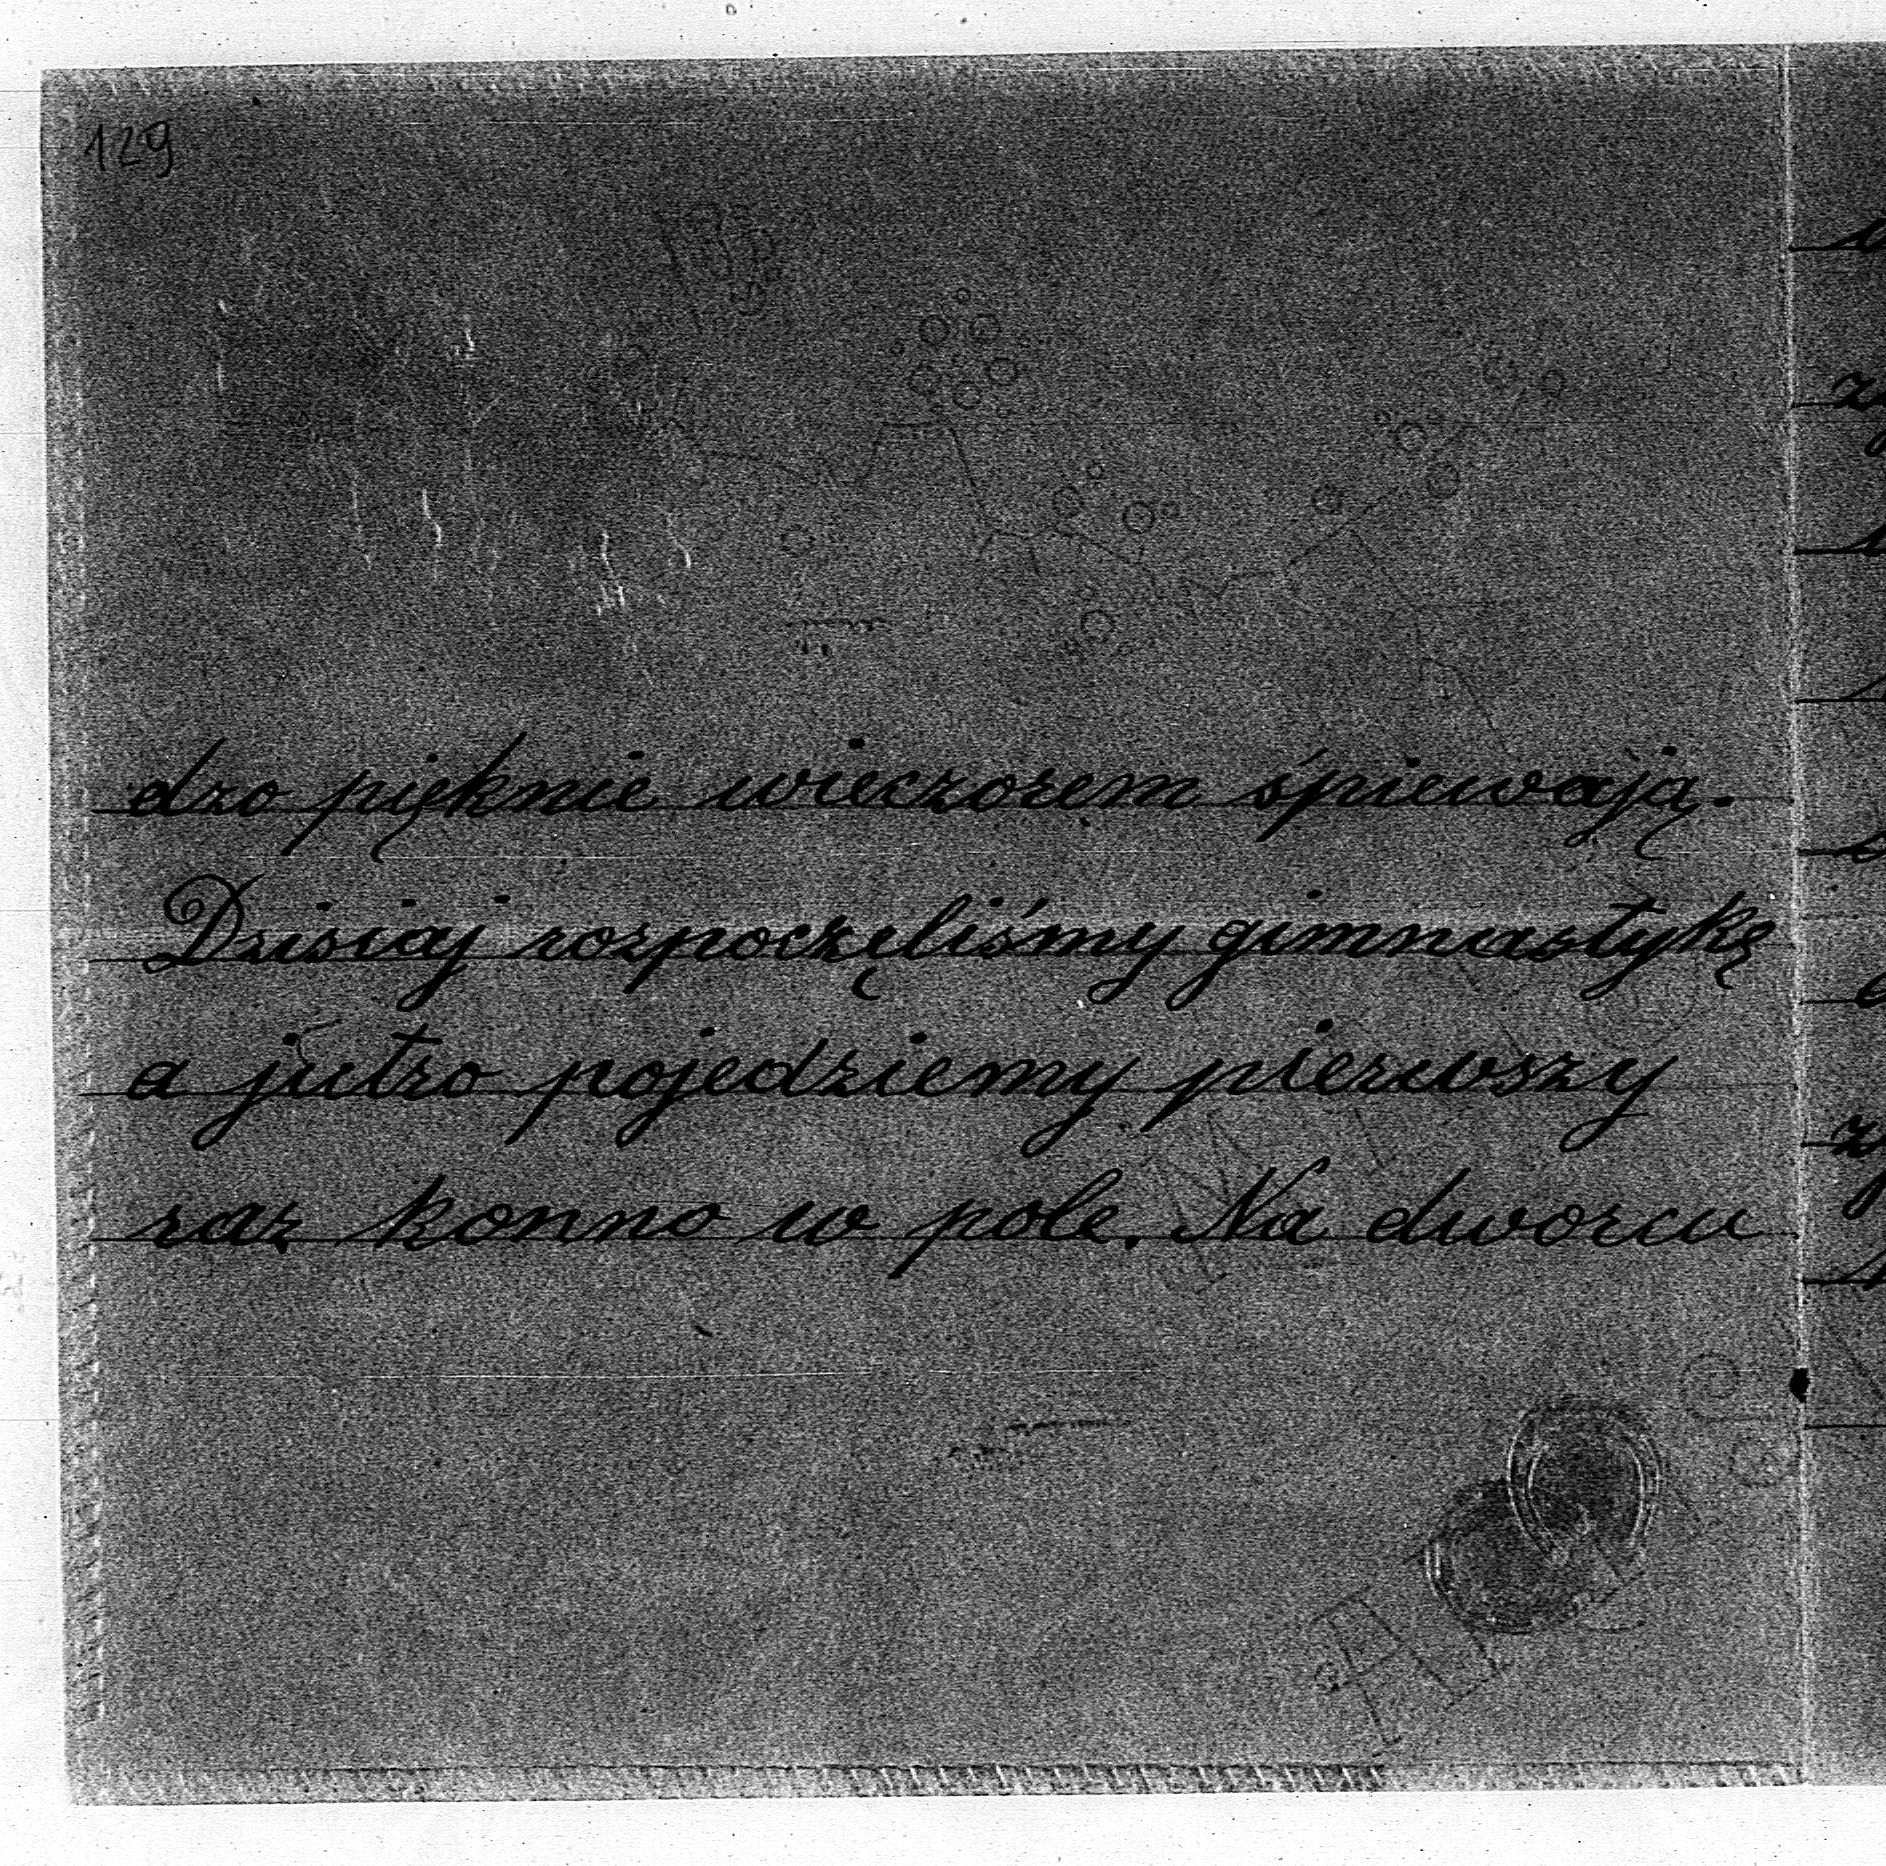 129
dzo pięknie wieczorem śpiewają.
Dzisiaj rozpoczęliśmy gimnastykę
a jutro pojedziemy pierwszy
raz konno w pole. Na dworcu